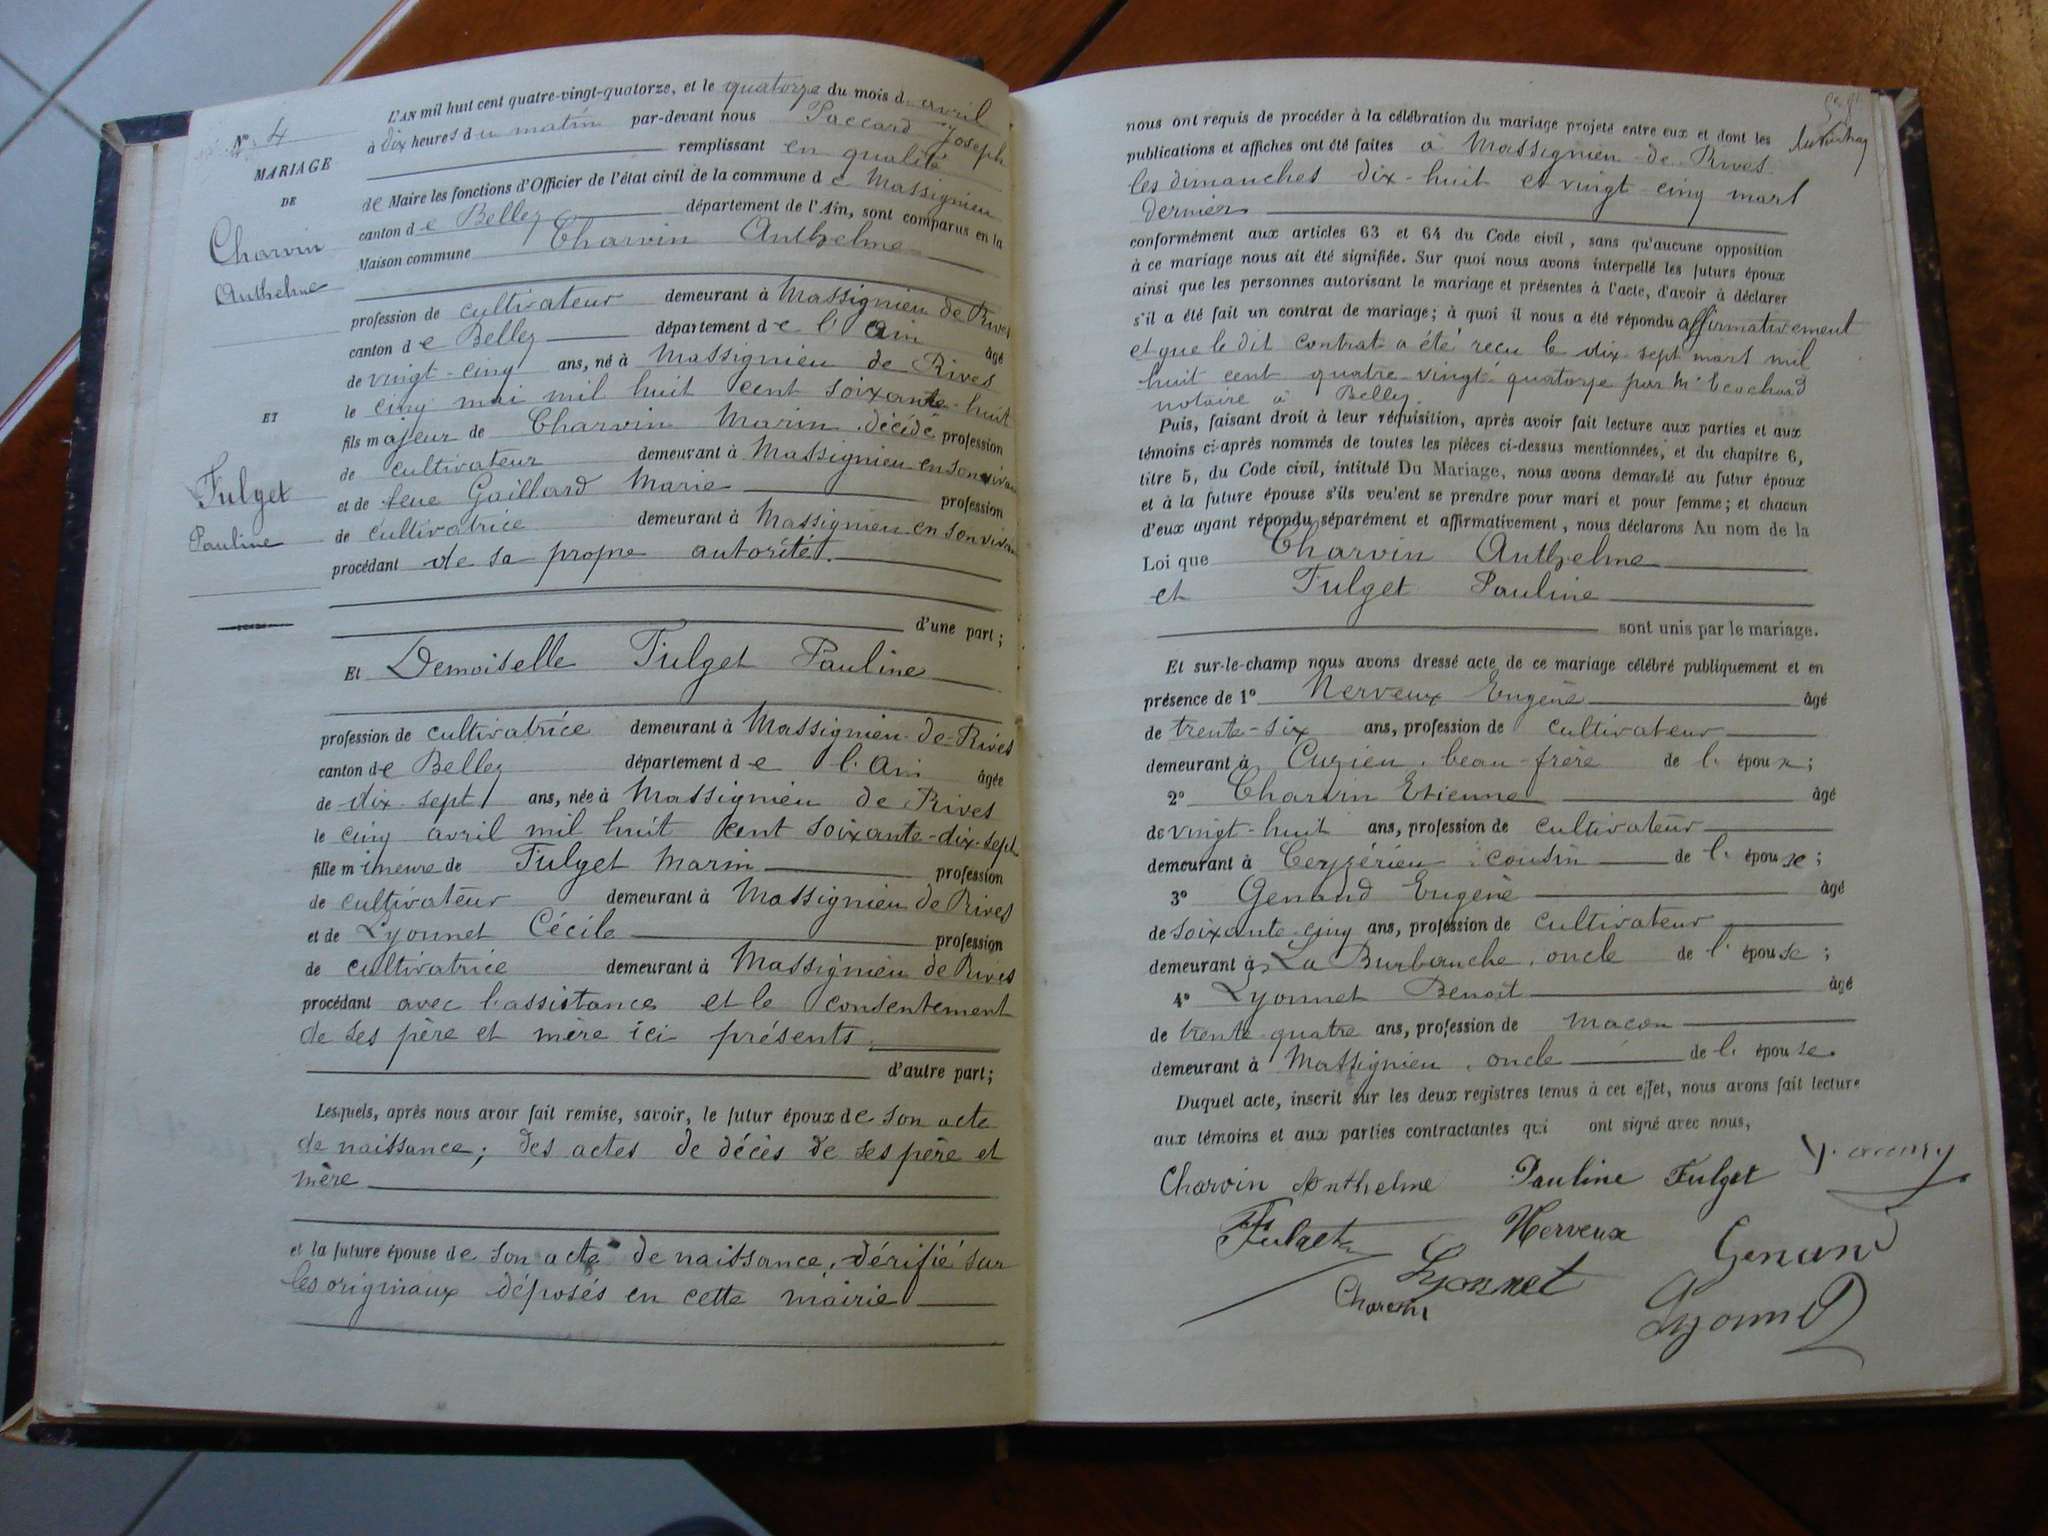 L'AN mil huit cent quatre-vingt-quatorze, et le quatorze du mois d avril
à dix heures du matin par-devant nous Paccard Joseph
remplissant en qualité
de Maire les fonctions d'Officier de l'état civil de la commune de Massignieu
canton de Belley département de l'Ain, sont comparus en la
Maison commune Charvin Anthelme
N° 4
MARIAGE
DE
Charvin
Anthelme
ET
Fulget
Pauline
profession de cultivateur demeurant à Massignieu de Rives
canton de Belley département de l'Ain âgé
de vingt-cinq ans, né à Massignieu de Rives
le cinq mai mil huit cent soixante-huit
fils majeur de Charvin Marin décédé profession
de cultivateur demeurant à Massignieu en son vivant
et de feue Gaillard Marie profession
de cultivatrice demeurant à Massignieu en son vivant
procédant de sa propre autorité.
d'une part;
Et Demoiselle Fulget Pauline
profession de cultivatrice demeurant à Massignieu-de-Rives
canton de Belley département de l'Ain âgée
de dix-sept ans, née à Massignieu de Rives
le cinq avril mil huit cent soixante-dix-sept
fille mineure de Fulget Marin profession
de cultivateur demeurant à Massignieu de Rives
et de Lyonnet Cécile profession
de cultivatrice demeurant à Massignieu de Rives
procédant avec l'assistance et le consentement
de ses père et mère ici présents.
d'autre part;
Lesquels, après nous avoir fait remise, savoir, le futur époux de son acte
de naissance; des actes de décès de ses père et
mère
et la future épouse de son acte de naissance, vérifié sur
les originaux déposés en cette mairie
nous ont requis de procéder à la célébration du mariage projeté entre eux et dont les
publications et affiches ont été faites à Massignieu-de-Rives
les dimanches dix-huit et vingt-cinq mars
dernier
conformément aux articles 63 et 64 du Code civil, sans qu'aucune opposition
à ce mariage nous ait été signifiée. Sur quoi nous avons interpellé les futurs époux
ainsi que les personnes autorisant le mariage et présentes à l'acte, d'avoir à déclarer
s'il a été fait un contrat de mariage; à quoi il nous a été répondu affirmativement
et que le dit contrat a été reçu le dix sept mars mil
huit cent quatre-vingt-quatorze par Me Ecochard
notaire à Belley.
Puis, faisant droit à leur réquisition, après avoir fait lecture aux parties et aux
témoins ci-après nommés de toutes les pièces ci-dessus mentionnées, et du chapitre 6,
titre 5, du Code civil, intitulé Du Mariage, nous avons demandé au futur époux
et à la future épouse s'ils veulent se prendre pour mari et pour femme; et chacun
d'eux ayant répondu séparément et affirmativement, nous déclarons Au nom de la
Loi que Charvin Anthelme
et Fulget Pauline
sont unis par le mariage.
Et sur-le-champ nous avons dressé acte de ce mariage célébré publiquement et en
présence de 1° Nerveux Eugène âgé
de trente-six ans, profession de cultivateur
demeurant à Cuzieu, beau-frère de l'époux;
2° Charvin Etienne âgé
de vingt-huit ans, profession de cultivateur
demeurant à Ceyzérieu, cousin de l'épouse;
3° Genand Eugène âgé
de soixante cinq ans, profession de cultivateur
demeurant à La Burbanche, oncle de l'épouse;
4° Lyonnet Benoit âgé
de trente quatre ans, profession de maçon
demeurant à Massignieu, oncle de l'épouse.
Duquel acte, inscrit sur les deux registres tenus à cet effet, nous avons fait lecture
aux témoins et aux parties contractantes qui ont signé avec nous,
Charvin Anthelme Pauline Fulget
Fulget Nerveux Genand
Lyonnet
Charvin Lyonnet